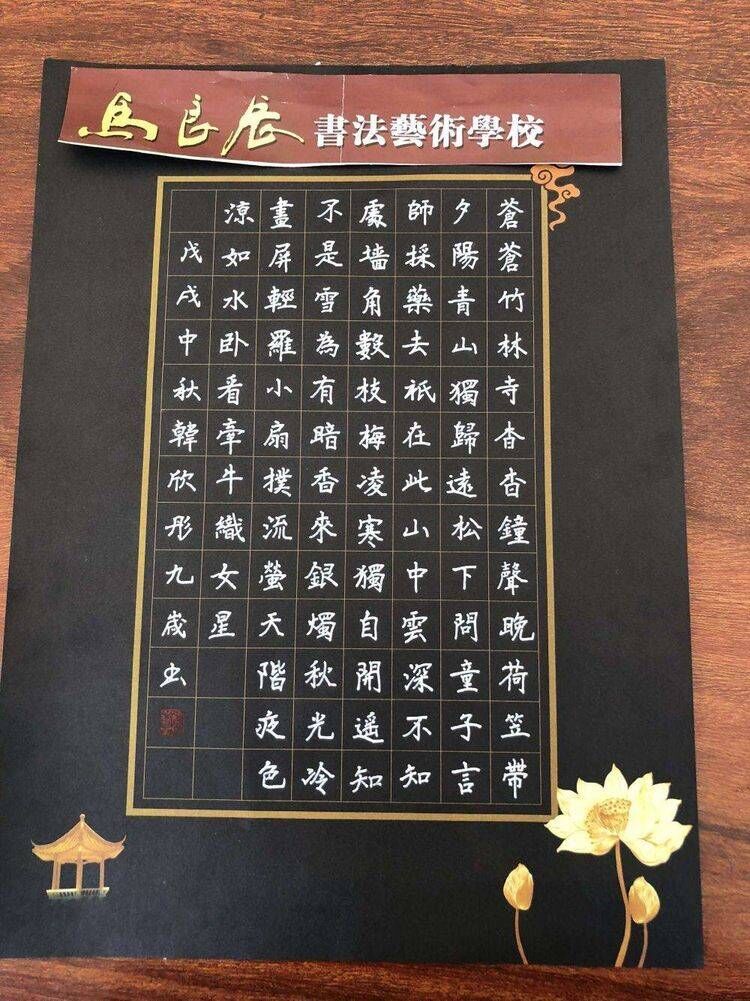 馬良辰書法藝術學校
蒼蒼竹林寺杳杳鐘聲晚荷笠帶
夕陽青山獨歸遠松下問童子言
師採藥去祇在此山中雲深不知
處墻角數枝梅凌寒獨自開遥知
不是雪為有暗香來銀燭秋光冷
畫屏輕羅小扇撲流螢天階夜色
涼如水卧看牽牛織女星
戊戌中秋韓欣彤九歲书